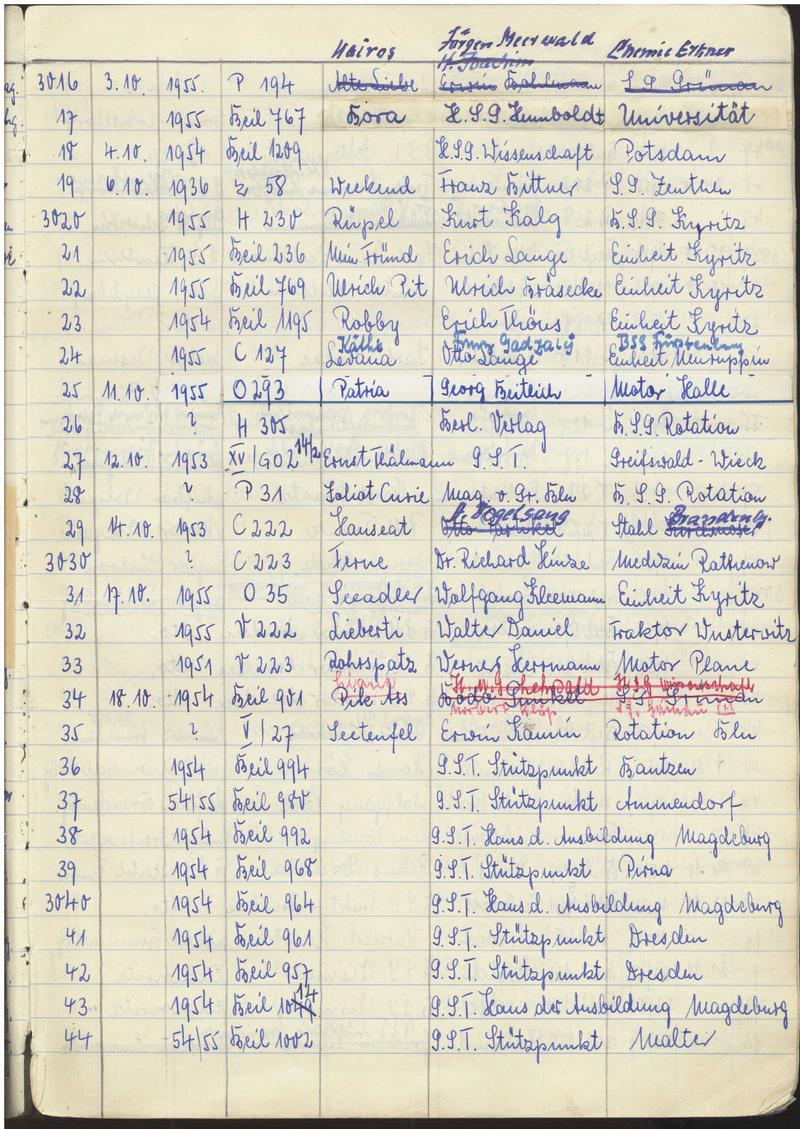 Kairos Jürgen Meerwald Chemie Erkner
H. Joachim
3016 3.10. 1955. P 194 Alte Liebe Erwin S.G. Grünau
17 1955 Beil 767 Bora H.S.G. Humboldt Universität
18 4.10. 1954 Beil 1209 H.S.G. Wissenschaft Potsdam
19 6.10. 1936 Z 58 Weekend Franz Bittner S.G. Zeuthen
3020 1955 H 230 Rüpel Kurt Kalg B.S.G. Kyritz
21 1955 Beil 236 Min Fründ Erich Lange Einheit Kyritz
22 1955 Beil 769 Ulrich Pit Ulrich Bräsecke Einheit Kyritz
23 1954 Beil 1195 Robby Erich Thöns Einheit Kyritz
Käthe BSG Fürstenberg
24 1955 C 127 Levana Otto Lange Einheit Neuruppin
25 11.10. 1955 O 293 Patria Georg Beitlich Motor Halle
26 ? H 305 Berl. Verlag B.S.G. Rotation
27 12.10. 1953 XV/G02 14/2 Ernst Thälmann G.S.T. Greifswald-Wieck
28 ? P 31 Joliot Curie Mag. v. Gr. Bln B.S.G. Rotation
Vogelsang
29 14.10. 1953 C 222 Hanseat Otto Stahl
3030 ? C 223 Ferne Dr. Richard Hinze Medizin Rathenow
31 17.10. 1955 O 35 Seeadler Wolfgang Kleemann Einheit Kyritz
32 1955 V 222 Lieberti Walter Daniel Traktor Wusterwitz
33 1951 V 223 Rohrspatz Werner Herrmann Motor Plaue
H.S.G. Wissenschaft
34 18.10. 1954 Beil 901 Pik Ass Bodo Punkel S.G. Grünau
Norbert
35 ? V/27 Seeteufel Erwin Kamin Rotation Bln
36 1954 Beil 994 G.S.T. Stützpunkt Bautzen
37 54/55 Beil 980 G.S.T. Stützpunkt Ammendorf
38 1954 Beil 992 G.S.T. Haus d. Ausbildung Magdeburg
39 1954 Beil 968 G.S.T. Stützpunkt Pirna
3040 1954 Beil 964 G.S.T. Haus d. Ausbildung Magdeburg
41 1954 Beil 961 G.S.T. Stützpunkt Dresden
42 1954 Beil 957 G.S.T. Stützpunkt Dresden
14
43 1954 Beil 1049 G.S.T. Haus der Ausbildung Magdeburg
44 54/55 Beil 1002 G.S.T. Stützpunkt Malter